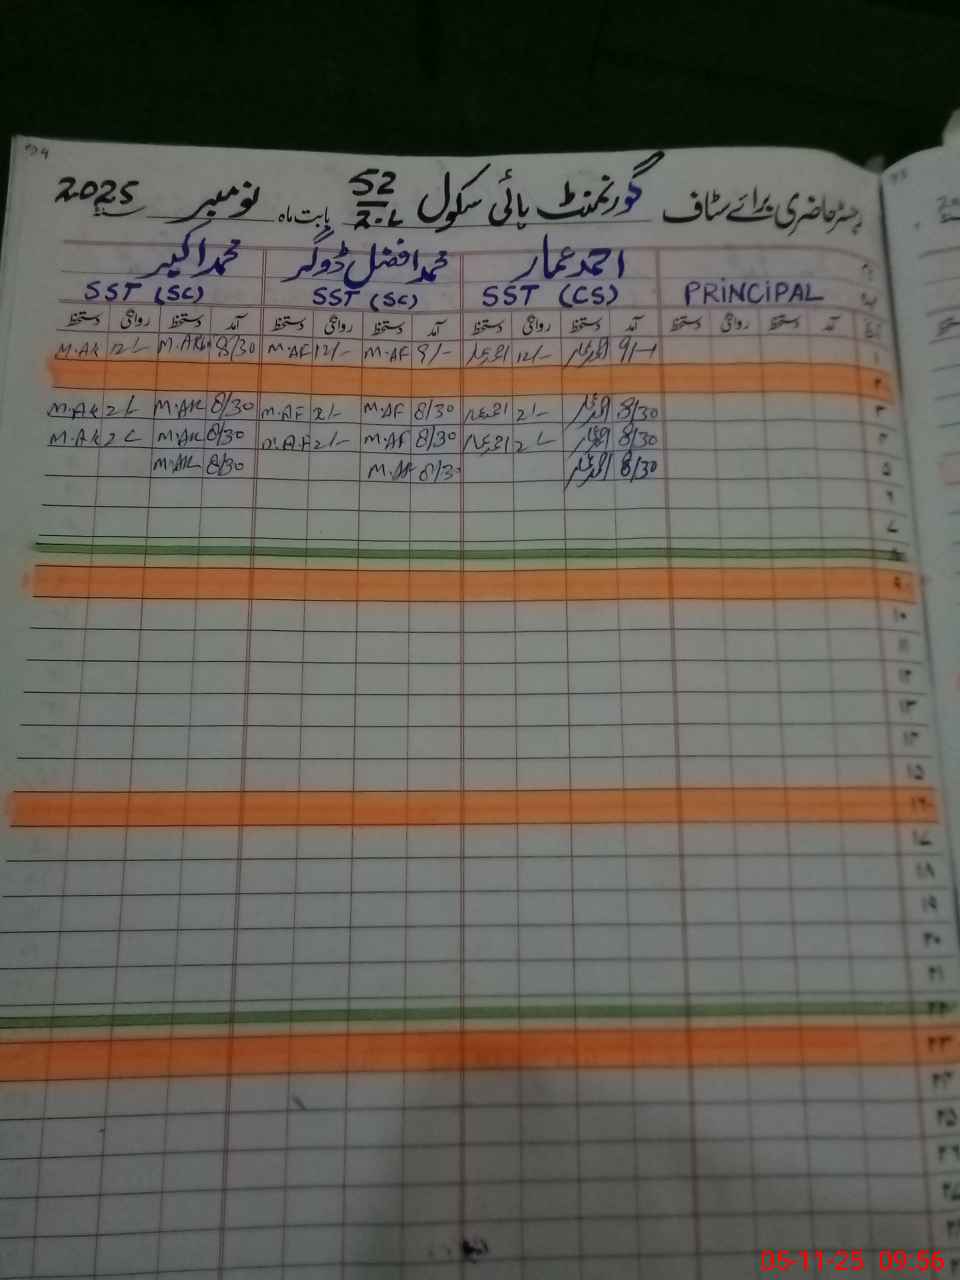 رجسٹر حاضری برائے سٹاف گورنمنٹ ہائی سکول 52/2.L بابت ماہ نومبر سنہ 2025
نام احمد عمار محمد افضل ڈوگر محمد اکبر
عہدہ PRINCIPAL SST (CS) SST (SC) SST (SC)
تاریخ آمد دستخط روانگی دستخط آمد دستخط روانگی دستخط آمد دستخط روانگی دستخط آمد دستخط روانگی دستخط
۱ 9/- احمد عمار 12/- احمد عمار 9/- M.AF 12/- M.AF 8/30 M.AK 12/- M.AK
۲
۳ 8/30 احمد عمار 2/- احمد عمار 8/30 M.AF 2/- M.AF 8/30 M.AK 2/- M.AK
۴ 8/30 احمد عمار 2/- احمد عمار 8/30 M.AF 2/- M.AF 8/30 M.AK 2/- M.AK
۵ 8/30 احمد عمار 8/30 M.AF 8/30 M.AK
۶
۷
۸
۹
۱۰
۱۱
۱۲
۱۳
۱۴
۱۵
۱۶
۱۷
۱۸
۱۹
۲۰
۲۱
۲۲
۲۳
۲۴
۲۵
۲۶
۲۷
05-11-25 09:56